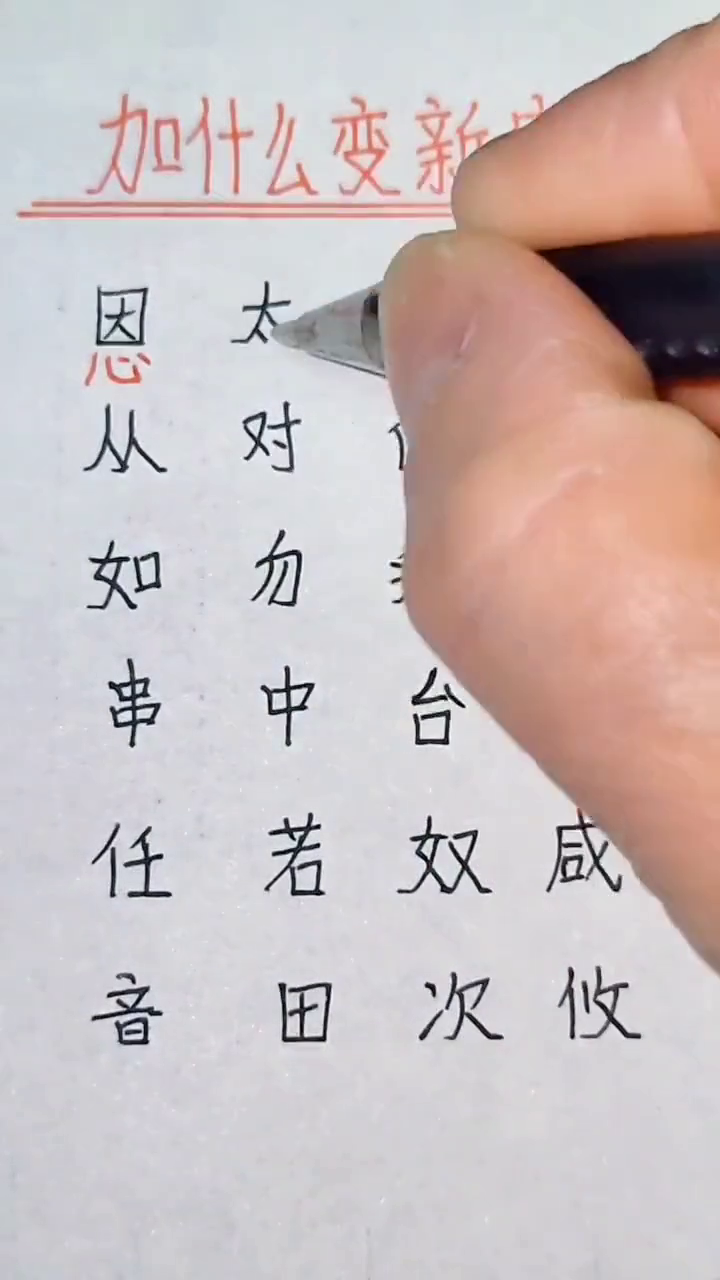 加什么变新
因 太
心
从 对
如 勿
串 中 台
任 若 奴 咸
音 田 次 攸